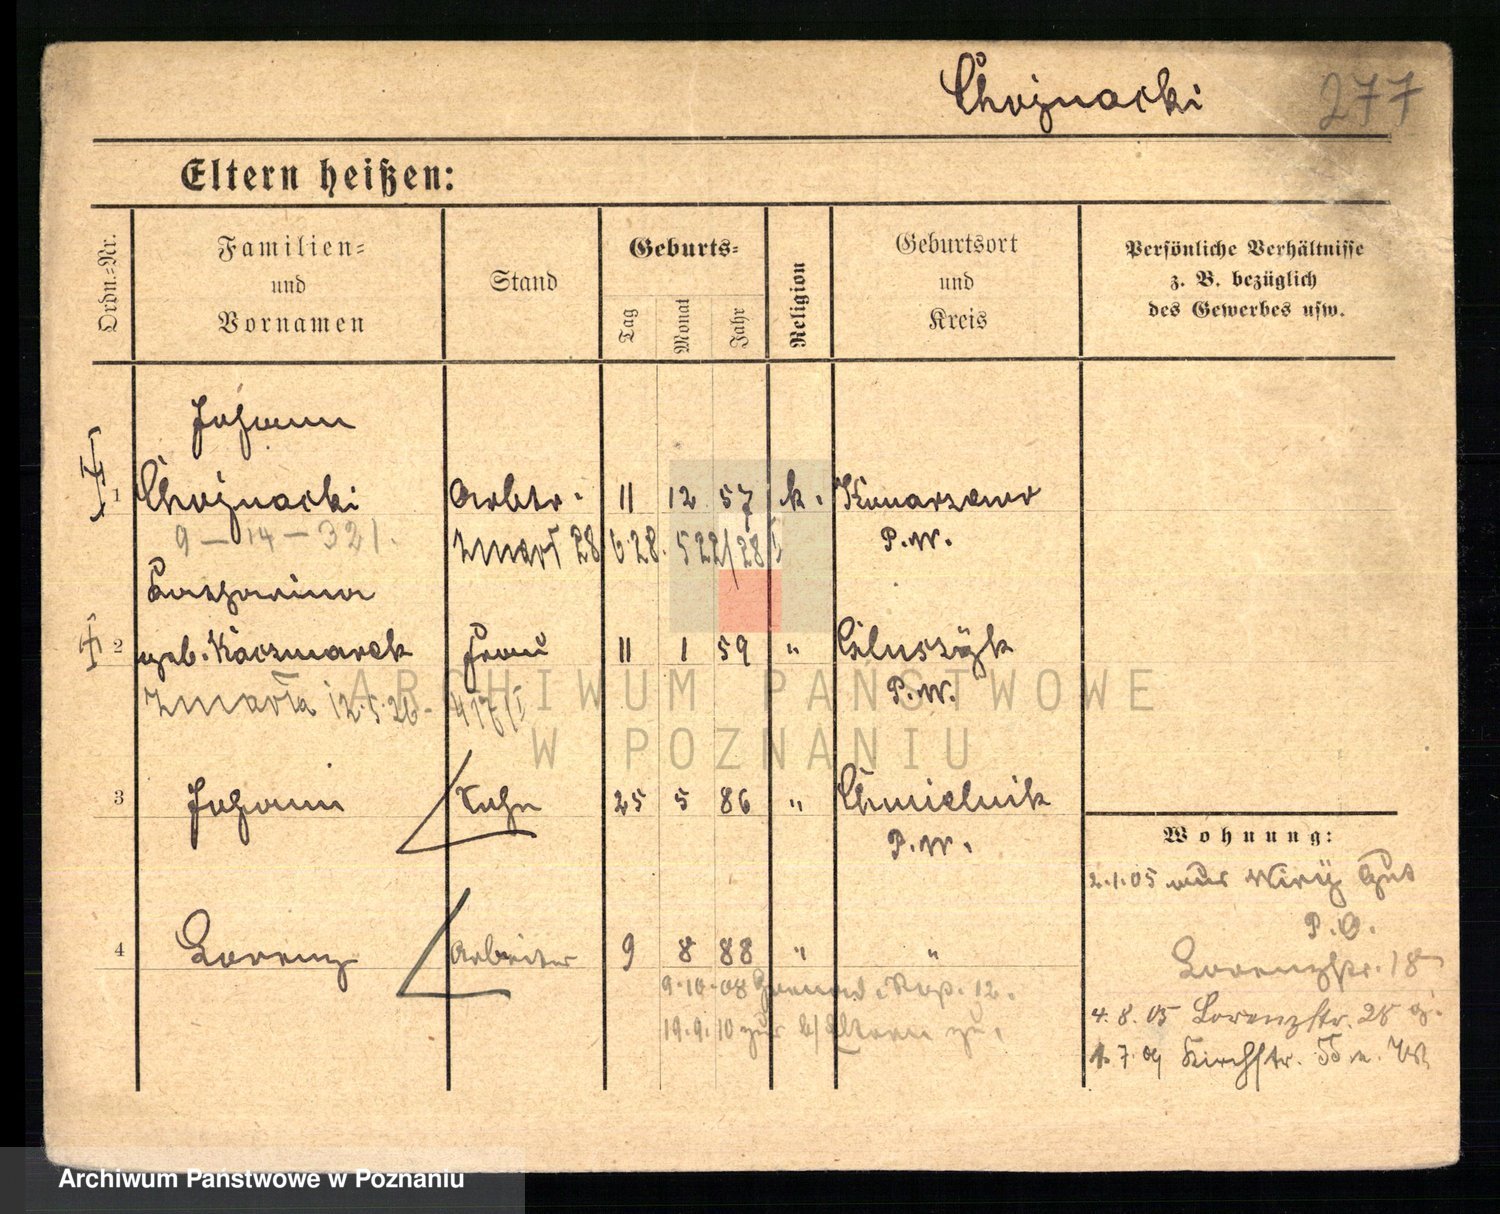 Chojnacki 277
Eltern heißen:
Ordn.-Nr.
Familien- und Vornamen
Stand
Geburts-
Tag Monat Jahr
Religion
Geburtsort und Kreis
Persönliche Verhältnisse
z. B. bezüglich
des Gewerbes usw.
Johann
1 Chojnacki Arbtr. 11 12 57 k. Konarzewo
9 — 14 — 321. zmarł 28 6 28. 522/28 P.W.
Katharina
2 geb. Kaczmarek Frau 11 1 59 "
zmarła 12.5.26. 417/I P.W.
ARCHIWUM PAŃSTWOWE
W POZNANIU
3 Johann Sohn 25 5 86 " Chmielnik
P.W.
Wohnung:
2.1.05 aus Wiry Gut
P.O.
4 Lorenz Arbeiter 9 8 88 " "
Lorenzstr. 18
9.10.08
19.9.10 zur Eltern zu.
4.8.05 Lorenzstr. 28
1.7.09 Kirchstr.
Archiwum Państwowe w Poznaniu